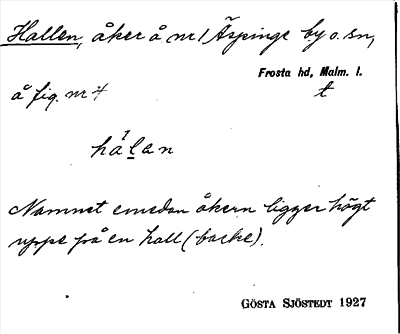 Hallen, åker å nr 1 Äspinge by o. sn,
Frosta hd, Malm. l.
å fig. nr 4 t
hálan
Namnet emedan åkern ligger högt
uppe på en hall (backe).
GÖSTA SJÖSTEDT 1927